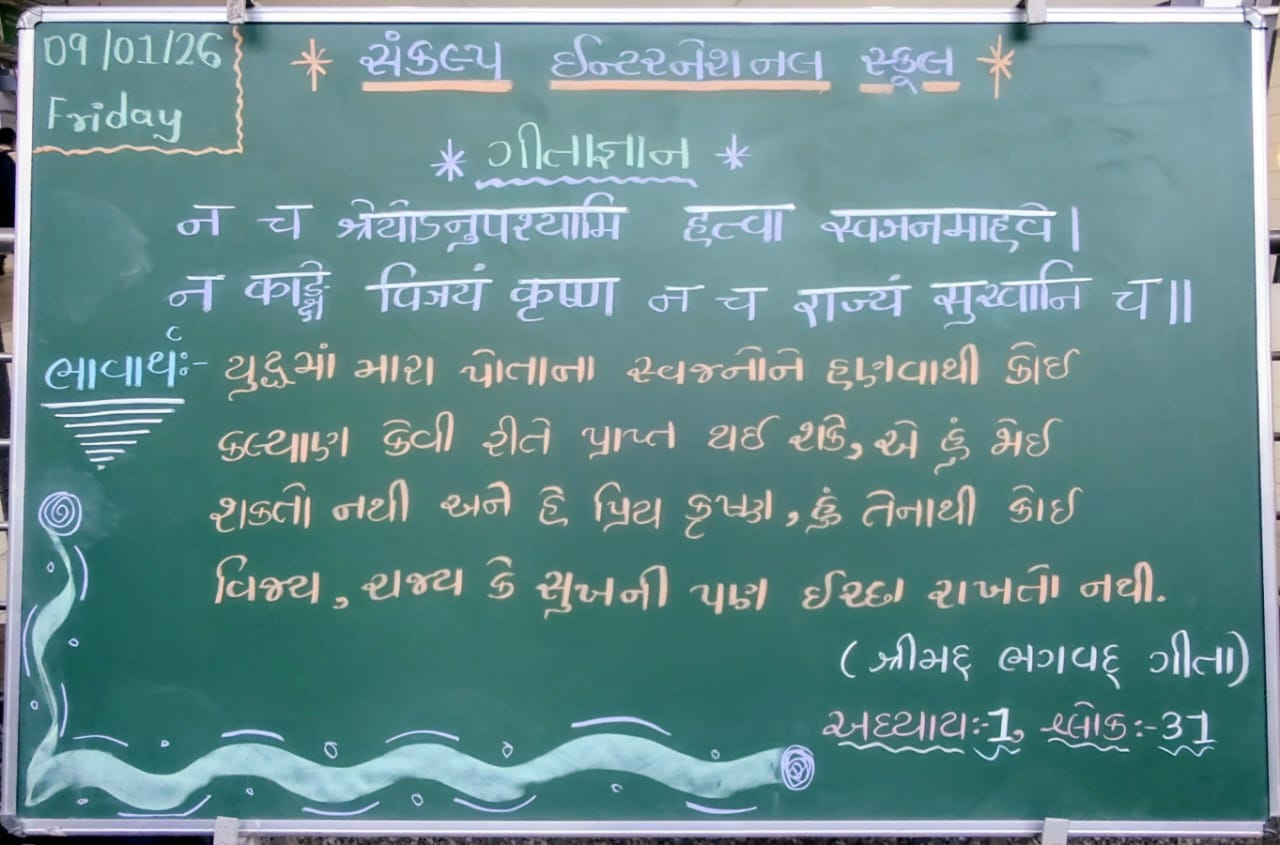 09/01/26
Friday
* સંકલ્પ ઈન્ટરનેશનલ સ્કૂલ *
* ગીતાજ્ઞાન *
न च श्रेयोऽनुपश्यामि हत्वा स्वजनमाहवे।
न काङ्क्षे विजयं कृष्ण न च राज्यं सुखानि च॥
ભાવાર્થઃ- યુદ્ધમાં મારા પોતાના સ્વજનોને હણવાથી કોઈ
કલ્યાણ કેવી રીતે પ્રાપ્ત થઈ શકે, એ હું જોઈ
શકતો નથી અને હે પ્રિય કૃષ્ણ, હું તેનાથી કોઈ
વિજય, રાજ્ય કે સુખની પણ ઈચ્છા રાખતો નથી.
(શ્રીમદ્ ભગવદ્ ગીતા)
અધ્યાયઃ-1, શ્લોકઃ-31